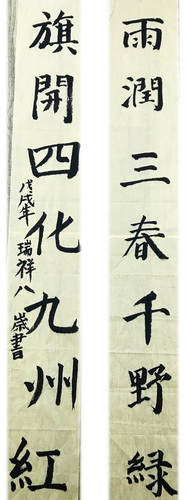 雨潤三春千野緑
旗開四化九州紅
戊戌年瑞祥八歲書